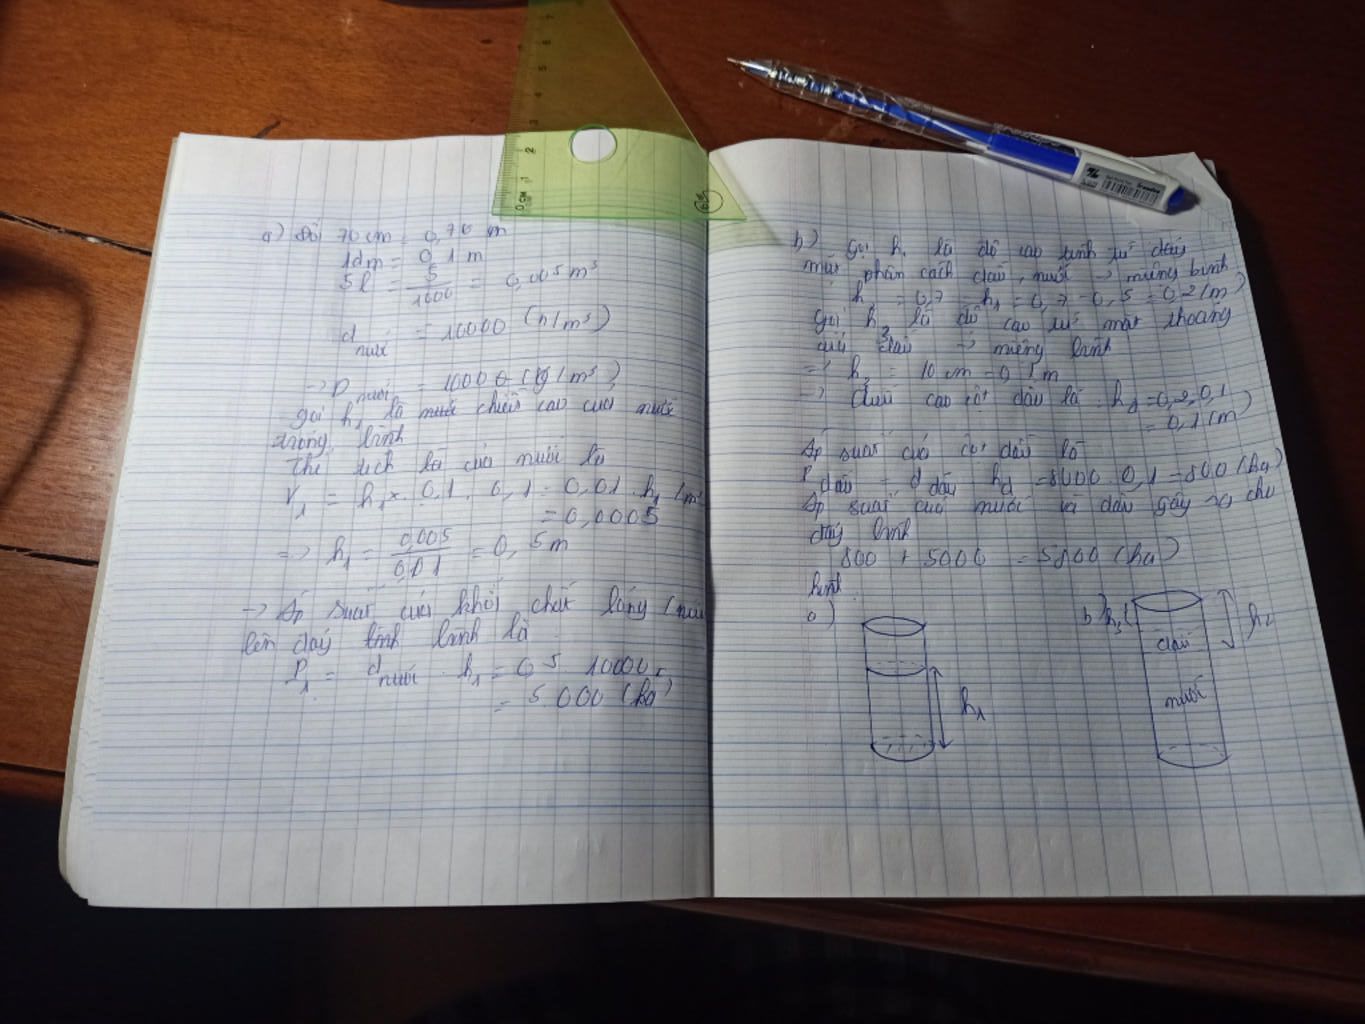 a) Đổi 70 cm = 0,70 m
1dm = 0,1 m
5l = 5/1000 = 0,005 m³
d nước = 10000 (n/m³)
-> D nước = 10000 (kg/m³)
gọi h₁ là nước chiều cao của nước
trong bình
Thể tích là của nước là
V₁ = h₁ × 0,1 . 0,1 = 0,01 . h₁ (m³
= 0,0005
=> h₁ = 0,005/0,01 = 0,5m
-> Áp suất của khối chất lỏng (nước
lên đáy bình bình là
P₁ = d nước . h₁ = 0,5 . 10000
= 5000 (ha)
b) gọi h là độ cao tính từ đáy
mặt phân cách dầu, nước -> miệng bình
h = 0,7 - h₁ = 0,7 - 0,5 = 0,2 (m)
gọi h₃ là độ cao từ mặt thoáng
của dầu -> miệng bình
=> h₃ = 10 cm = 0,1m
-> chiều cao cột dầu là h = 0,2 0,1
= 0,1 (m)
Áp suất của cột dầu là
P dầu = d dầu h = 8000 . 0,1 = 800 (ha)
Áp suất của nước và dầu gây ra cho
đáy bình
800 + 5000 = 5800 (ha)
hình
a)
h₁
b)
h₃
h₂
dầu
nước
0 cm 1 2 3 4 5 6 7